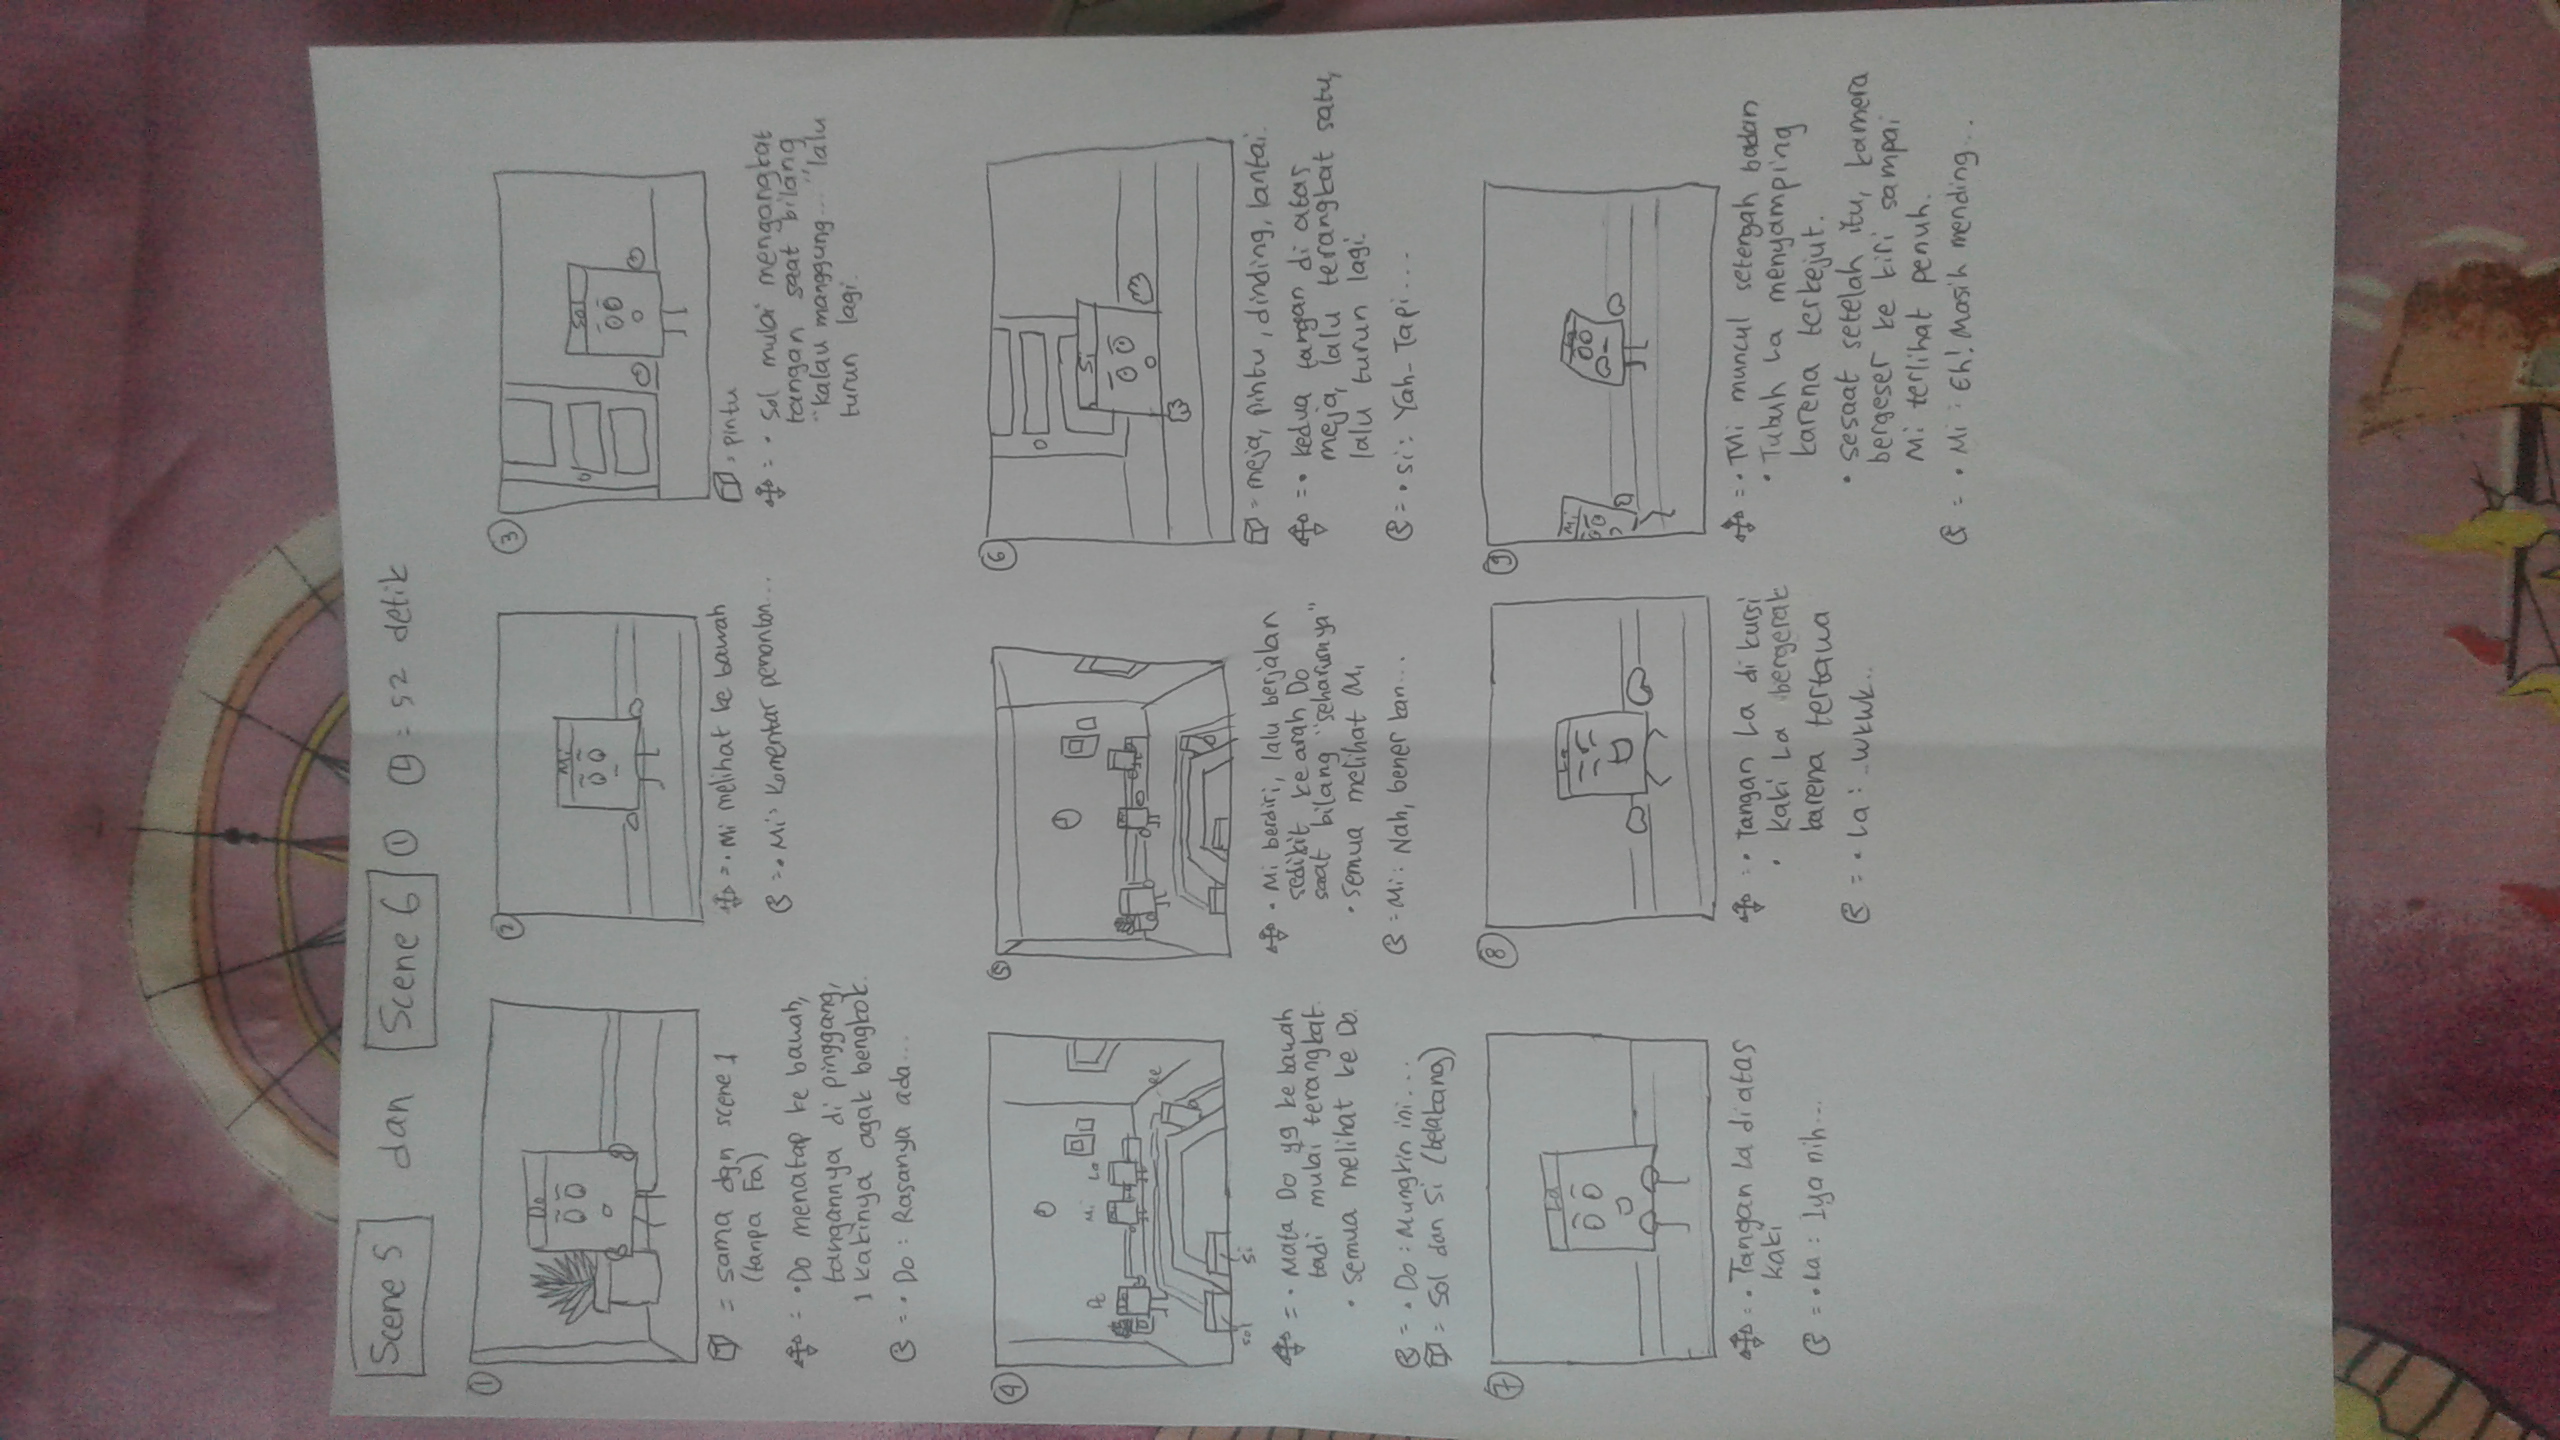 Scene 5 dan Scene 6 ① = 52 detik
①
Do
= sama dgn scene 1
(tanpa Fa)
= • Do menatap ke bawah,
tangannya di pinggang,
1 kakinya agak bengkok.
= • Do : Rasanya ada...
②
Mi
= • Mi melihat ke bawah
= • Mi : Komentar penonton...
③
Sol
= pintu
= • Sol mulai mengangkat
tangan saat bilang
"kalau manggung..." lalu
turun lagi.
④
Do Mi La
Re
Sol Si
= • Mata Do yg ke bawah
tadi mulai terangkat.
• semua melihat ke Do.
= • Do : Mungkin ini...
= Sol dan Si (belakang)
⑤
• Mi berdiri, lalu berjalan
sedikit ke arah Do
saat bilang "seharusnya"
• semua melihat Mi
= Mi : Nah, bener kan...
⑥
Si
= meja, pintu, dinding, lantai.
= • kedua tangan di atas
meja, lalu terangkat satu,
lalu turun lagi.
= • Si : Yah- Tapi....
⑦
La
= • Tangan La di atas
kaki
= • La : Iya nih...
⑧
La
= • Tangan La di kursi
• Kaki La bergerak
karena tertawa
= • La : ..wkwk..
⑨
Mi
La
= • Mi muncul setengah badan
• Tubuh La menyamping
karena terkejut.
• sesaat setelah itu, kamera
bergeser ke kiri sampai
Mi terlihat penuh.
= • Mi : Eh! Masih mending...